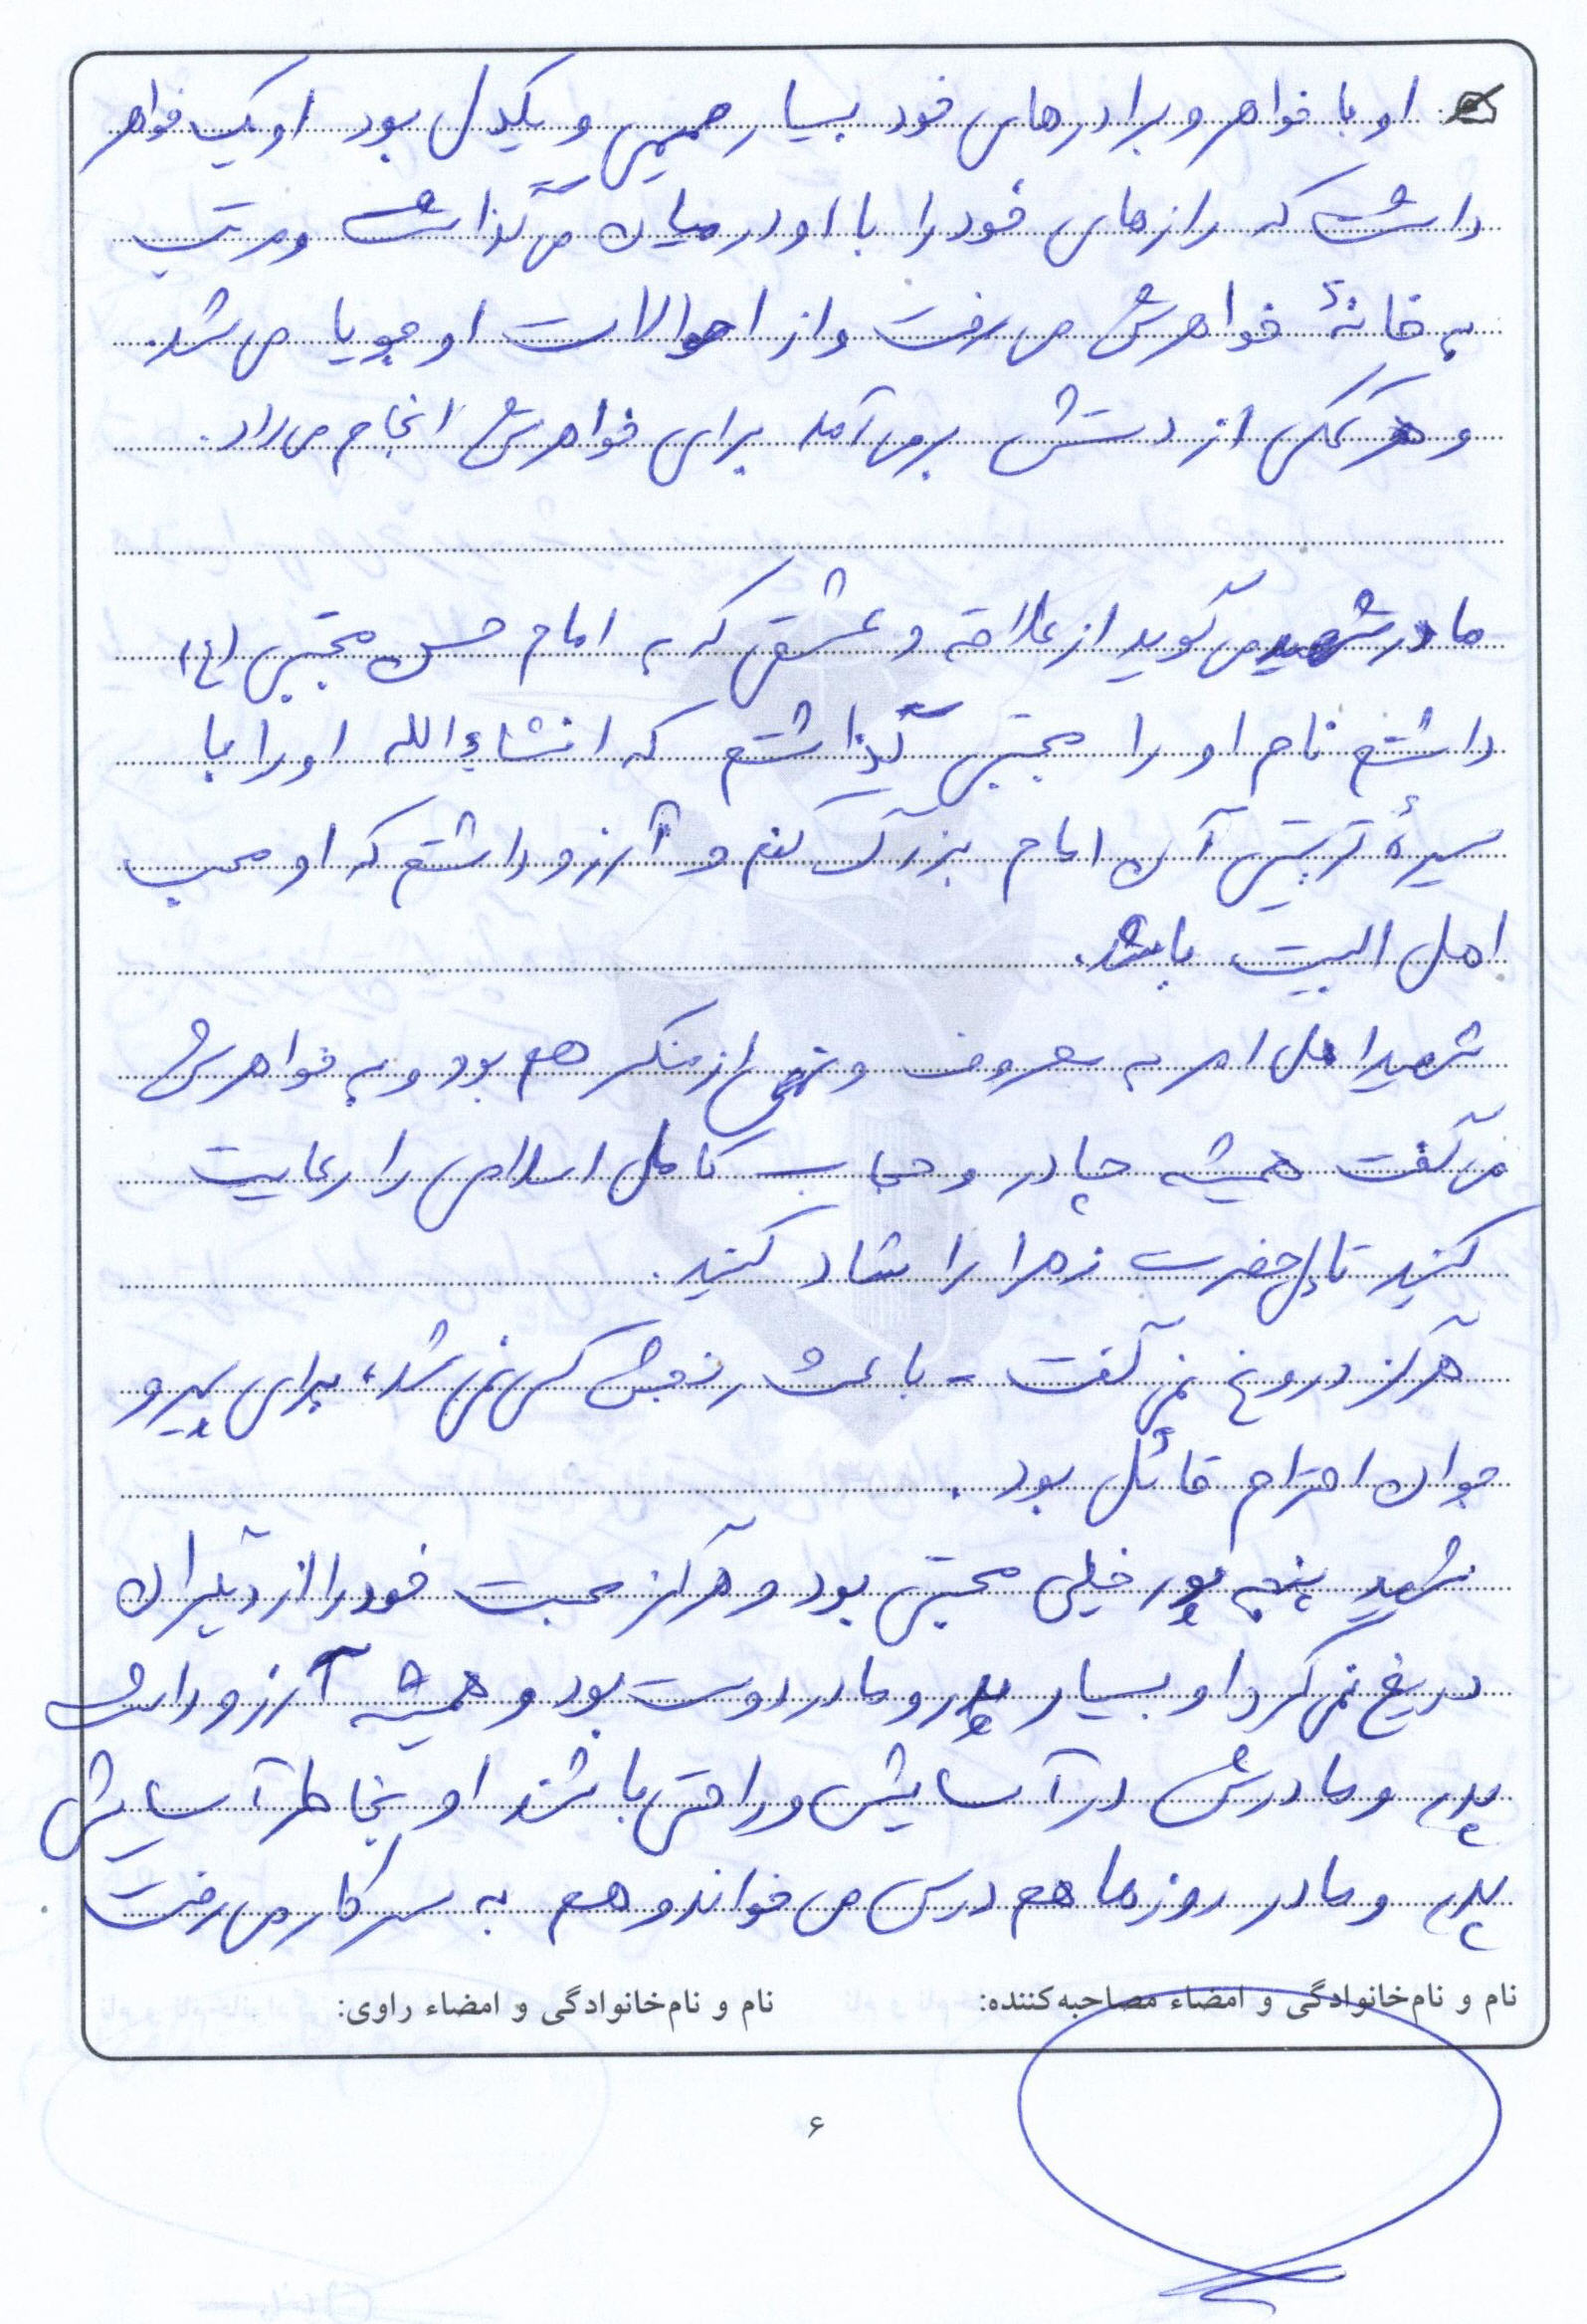 او با خواهر و برادرهای خود بسیار صمیمی و یکدل بود او یک خواهر
داشت که رازهای خود را با او در میان می‌گذاشت و مرتب
به خانهٔ خواهرش می‌رفت و از احوالات او جویا می‌شد.
و هر کمکی از دستش برمی‌آمد برای خواهرش انجام می‌داد.
مادر شهید می‌گوید از علاقه و عشقی که به امام حسن مجتبی (ع)
داشتم نام او را مجتبی گذاشتم که انشاءالله او را با
سیرهٔ تربیتی آن امام بزرگ کنم و آرزو داشتم که او محب
اهل البیت باشد.
شهید اهل امر به معروف و نهی از منکر هم بود و به خواهرش
می‌گفت همیشه چادر و حجاب کامل اسلامی را رعایت
کنید تا دل حضرت زهرا را شاد کنید.
هرگز دروغ نمی‌گفت - باعث رنجش کسی نمی‌شد، برای پیر و
جوان احترام قائل بود.
شهید پنجه پور خیلی محبتی بود و هرگز محبت خود را از دیگران
دریغ نمی‌کرد او بسیار پدر و مادر دوست بود و همیشه آرزو داشت
پدر و مادرش در آسایش و راحتی باشند او بخاطر آسایش
پدر و مادر روزها هم درس می‌خواند و هم به سر کار می‌رفت
نام و نام‌خانوادگی و امضاء مصاحبه‌کننده: نام و نام‌خانوادگی و امضاء راوی:
۶